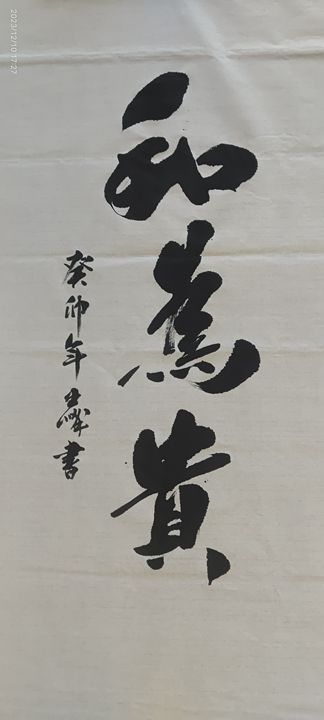 和為貴
癸卯年
書
2023/12/10 17:27